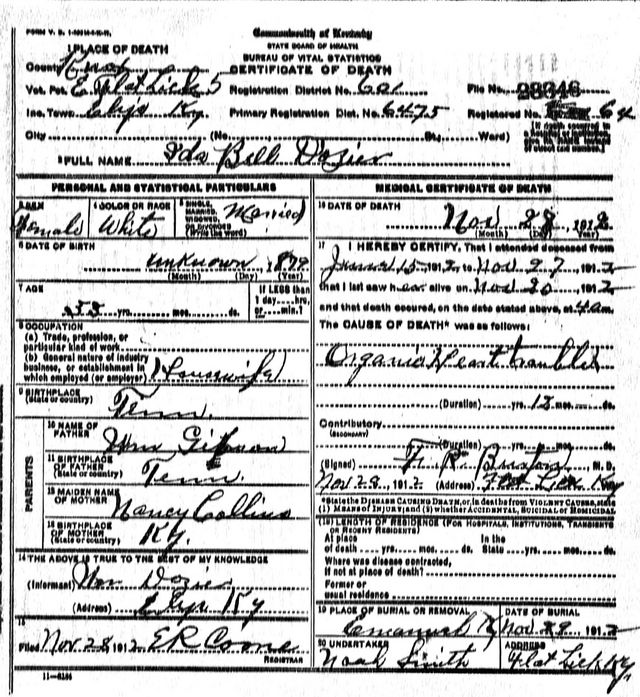 Commonwealth of Kentucky
STATE BOARD OF HEALTH
BUREAU OF VITAL STATISTICS
CERTIFICATE OF DEATH
1 PLACE OF DEATH
County Knox
Vot. Pct. E Flat Lick 5 Registration District No. 601 File No. 28346
Inc. Town Elys Ky Primary Registration Dist. No. 6475 Registered No. 64
City (No. St., Ward)
[If death occurred in a hospital or institution give its NAME instead of street and number.]
2 FULL NAME Ida Bell Dozier
PERSONAL AND STATISTICAL PARTICULARS
3 SEX Female
4 COLOR OR RACE White
5 SINGLE, MARRIED, WIDOWED, OR DIVORCED (Write the word) Married
6 DATE OF BIRTH
unknown, 1879
(Month) (Day) (Year)
7 AGE If LESS than
yrs. mos. ds. 1 day hrs. or min.?
8 OCCUPATION
(a) Trade, profession, or particular kind of work
(b) General nature of industry
business, or establishment in
which employed (or employer) Housewife
9 BIRTHPLACE
(State or country) Tenn.
PARENTS
10 NAME OF FATHER Wm Gibson
11 BIRTHPLACE OF FATHER (State or country) Tenn.
12 MAIDEN NAME OF MOTHER Nancy Collins
13 BIRTHPLACE OF MOTHER (State or country) Ky.
14 THE ABOVE IS TRUE TO THE BEST OF MY KNOWLEDGE
(Informant) Dozier
(Address) Elys Ky
15
Filed Nov 28 1912 E R
REGISTRAR
11-6184
MEDICAL CERTIFICATE OF DEATH
16 DATE OF DEATH
Nov 28, 1912
(Month) (Day) (Year)
17 I HEREBY CERTIFY, That I attended deceased from
15 1912, to Nov 27, 1912
that I last saw her alive on Nov 20, 1912
and that death occured, on the date stated above, at 4 am.
The CAUSE OF DEATH* was as follows:
Organic Heart trouble
(Duration) yrs. 12 mos. ds.
Contributory
(SECONDARY)
(Duration) yrs. mos. ds.
(Signed) F. R. Burton, M. D.
Nov 28, 1912 (Address) Flat Lick Ky
*State the DISEASE CAUSING DEATH, or, in deaths from VIOLENT CAUSES, state
(1) MEANS OF INJURY; and (2) whether ACCIDENTAL, SUICIDAL or HOMICIDAL
18 LENGTH OF RESIDENCE (FOR HOSPITALS, INSTITUTIONS, TRANSIENTS
OR RECENT RESIDENTS)
At place In the
of death yrs. mos. ds. State yrs. mos. ds.
Where was disease contracted,
if not at place of death?
Former or
usual residence
19 PLACE OF BURIAL OR REMOVAL DATE OF BURIAL
Emanuel Ky Nov 29, 1912
20 UNDERTAKER ADDRESS
Noah Smith Flat Lick Ky.